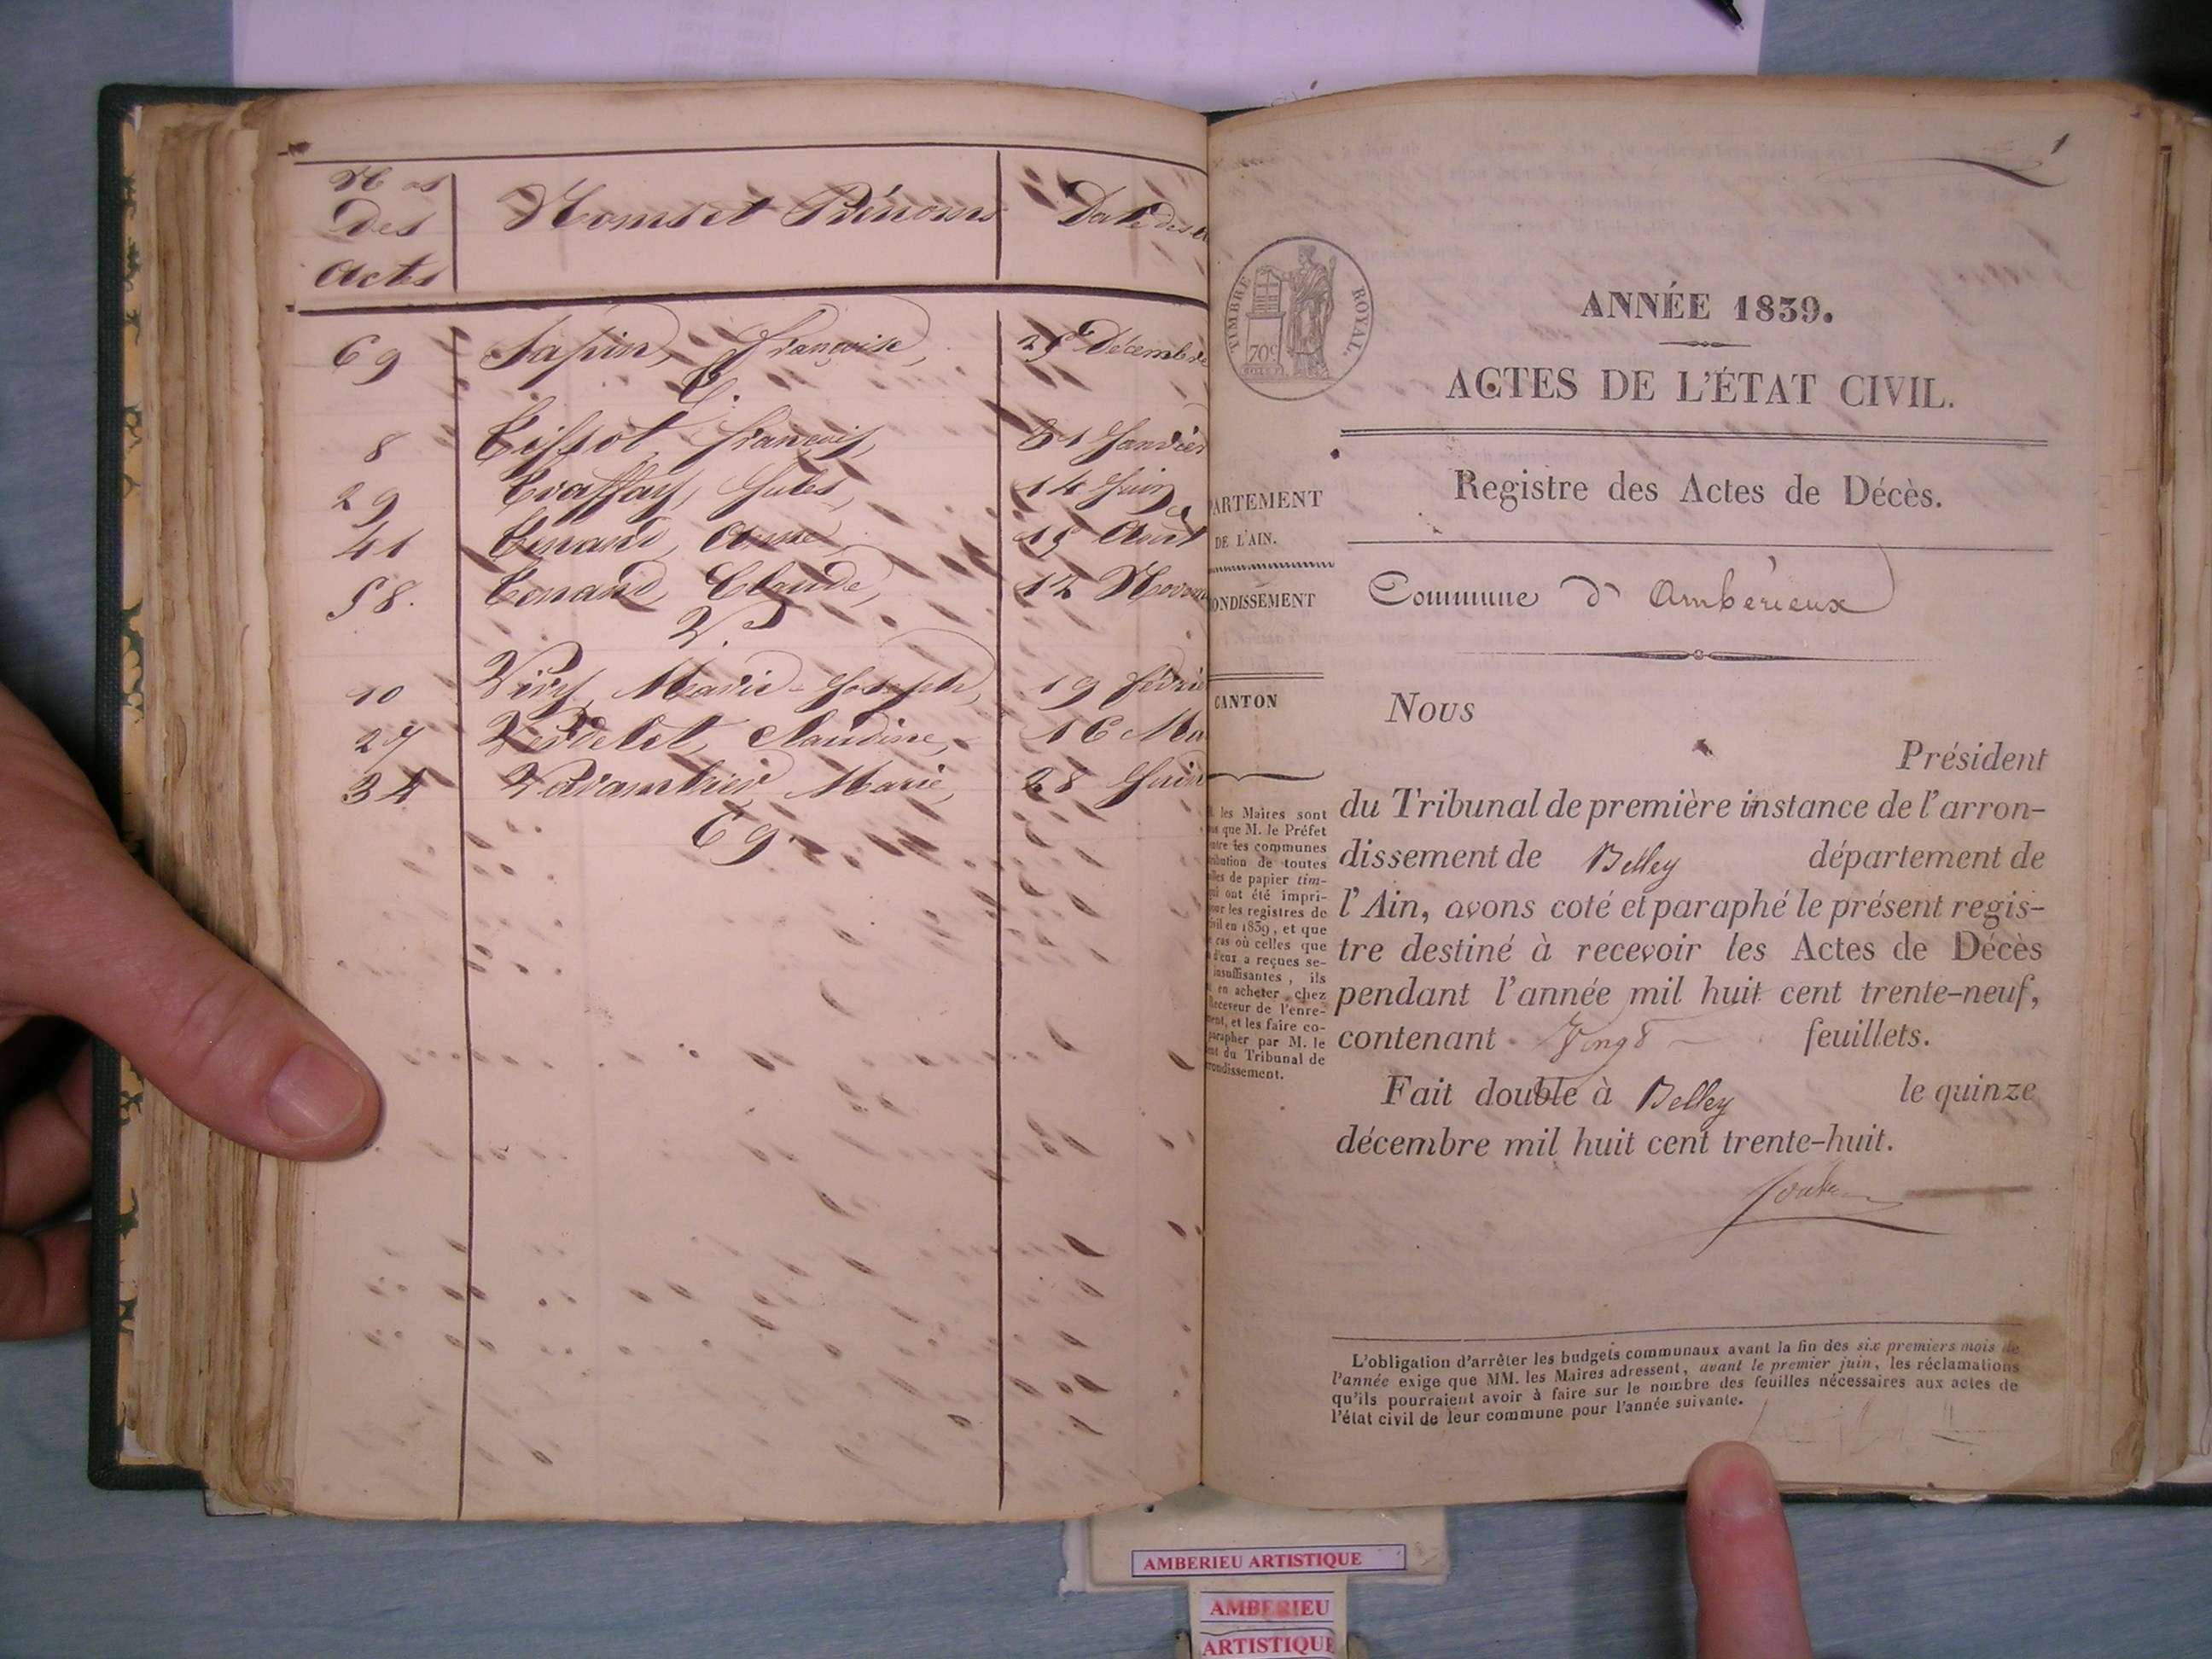 Nos
Des
Actes
Noms et Prénoms
Date des
69 Sapin, Françoise, 25 Décembre
T.
8 Tissot, François, 31 Janvier
29 Traffay, Jules, 14 Juin
41 Tenand, Aimé, 15 Août
58. Tenand, Claude, 12
V.
10 Viry, Marie-Joseph, 19
27 Verdelet, Claudine, 16
34 Varambier Marie, 28 Juin
69.
1
TIMBRE ROYAL.
70c
ANNÉE 1839.
ACTES DE L'ÉTAT CIVIL.
Registre des Actes de Décès.
ARTEMENT
DE L'AIN.
ONDISSEMENT
CANTON
les Maires sont
que M. le Préfet
les communes
de toutes
de papier tim-
ont été impri-
les registres de
en 1839, et que
cas où celles que
d'eux a reçues se-
insuffisantes, ils
en acheter chez
Receveur de l'enre-
et les faire co-
parapher par M. le
du Tribunal de
ondissement.
Commune d'Ambérieux
Nous
Président
du Tribunal de première instance de l'arron-
dissement de Belley département de
l'Ain, avons coté et paraphé le présent regis-
tre destiné à recevoir les Actes de Décès
pendant l'année mil huit cent trente-neuf,
contenant Vingt feuillets.
Fait double à Belley le quinze
décembre mil huit cent trente-huit.
L'obligation d'arrêter les budgets communaux avant la fin des six premiers mois de
l'année exige que MM. les Maires adressent, avant le premier juin, les réclamations
qu'ils pourraient avoir à faire sur le nombre des feuilles nécessaires aux actes de
l'état civil de leur commune pour l'année suivante.
AMBERIEU ARTISTIQUE
AMBERIEU
ARTISTIQUE